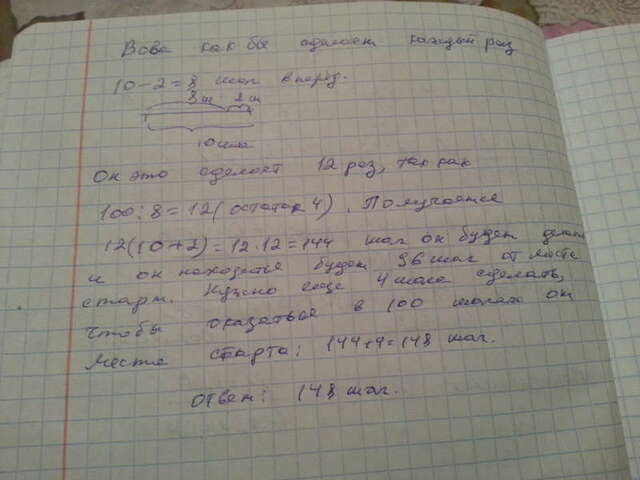 Вова как бы сделает каждый раз
10-2=8 шаг вперёд.
8ш 2ш
10 шага
Он это сделает 12 раз, так как
100:8=12(остаток 4). Получается
12(10+2)=12·12=144 шаг он будет делать
и он находится будет 96 шаг от места
старт. Нужно еще 4 шага сделать,
чтобы оказаться в 100 шагах от
места старта: 144+4=148 шаг.
ответ: 148 шаг.